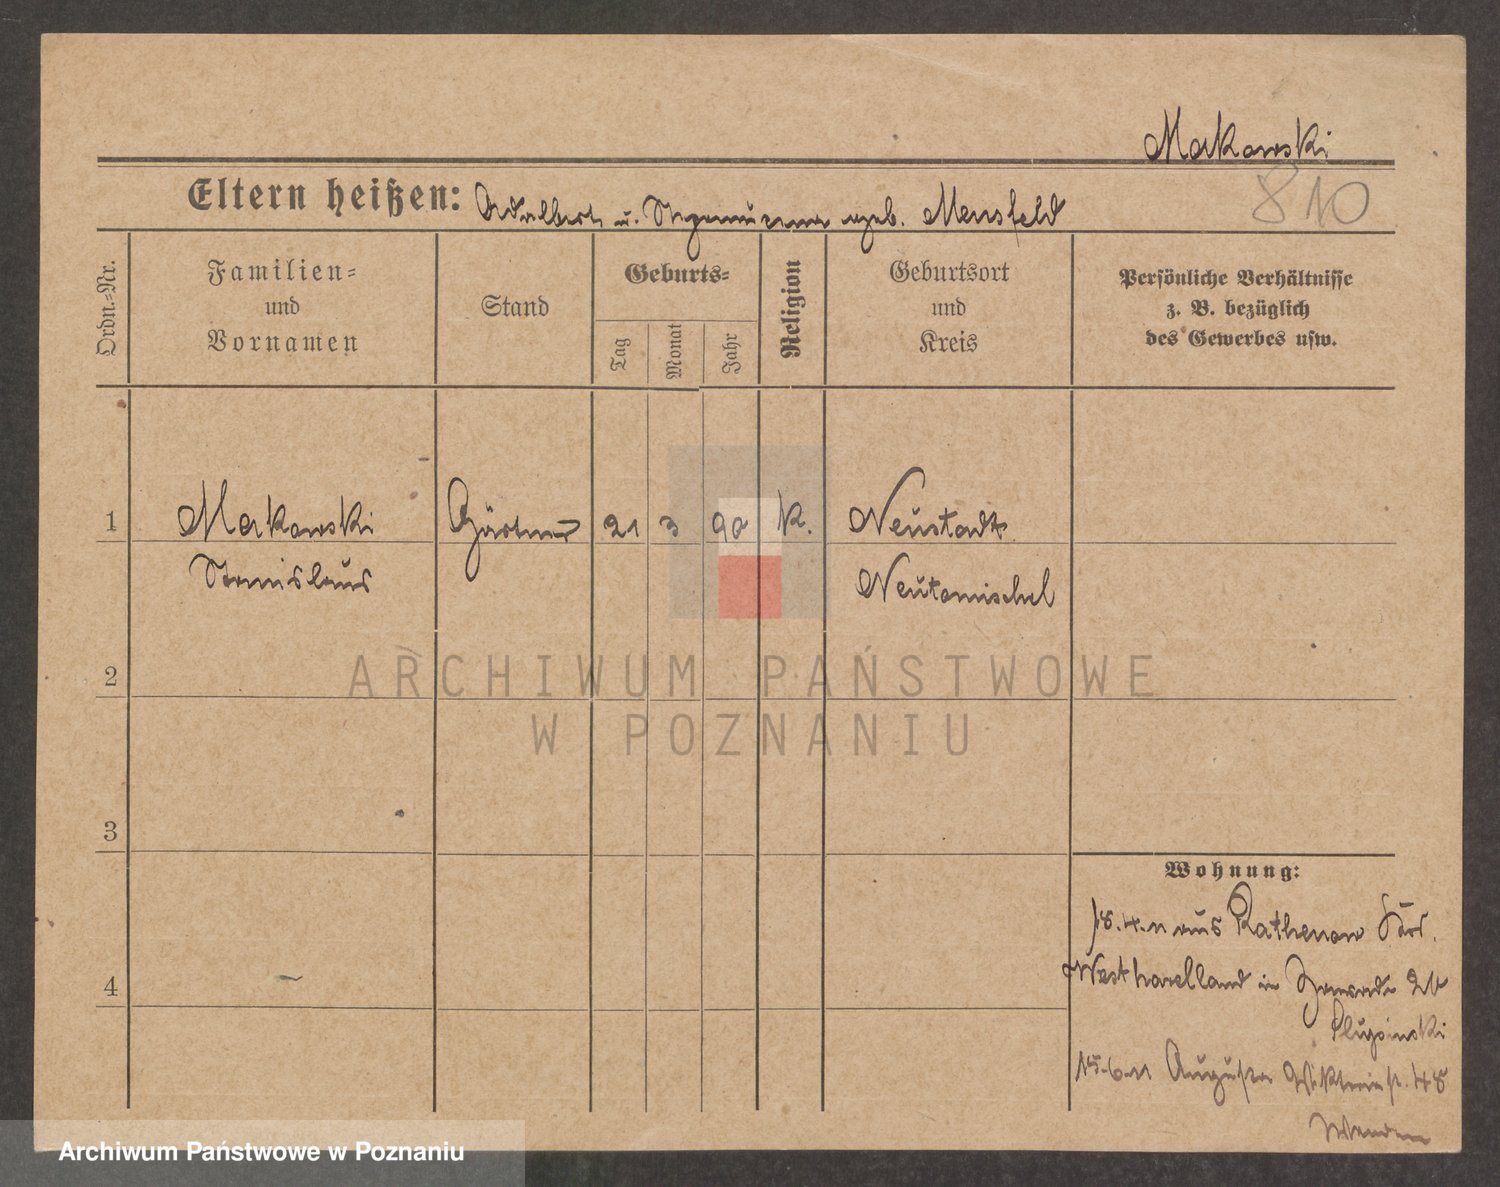 Makowski
810
Eltern heißen: Adalbert u. geb. Mensfeld
Ordn.-Nr.
Familien-
und
Vornamen
Stand
Geburts-
Tag
Monat
Jahr
Religion
Geburtsort
und
Kreis
Persönliche Verhältnisse
z. B. bezüglich
des Gewerbes usw.
1 Makowski Gärtner 21 3 90 k. Neustadt
Stanislaus Neutomischel
2
3
4
ARCHIWUM PAŃSTWOWE
W POZNANIU
Wohnung:
18.4.11 aus Rathenow
Westhavelland in
15.6.11 Augusta Viktoriastr. 48
Archiwum Państwowe w Poznaniu